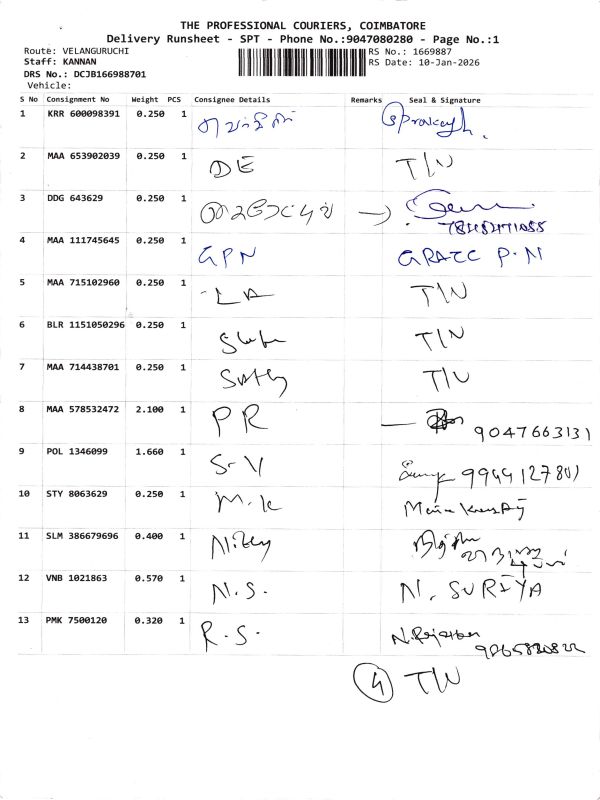 THE PROFESSIONAL COURIERS, COIMBATORE
Delivery Runsheet - SPT - Phone No.:9047080280 - Page No.:1
Route: VELANGURUCHI RS No.: 1669887
Staff: KANNAN RS Date: 10-Jan-2026
DRS No.: DCJB166988701
Vehicle:
S No Consignment No Weight PCS Consignee Details Remarks Seal & Signature
1 KRR 600098391 0.250 1
2 MAA 653902039 0.250 1 DE T/N
3 DDG 643629 0.250 1
4 MAA 111745645 0.250 1 GPN P.N
5 MAA 715102960 0.250 1 LA T/N
6 BLR 1151050296 0.250 1 T/N
7 MAA 714438701 0.250 1 T/N
8 MAA 578532472 2.100 1 PR 9047663131
9 POL 1346099 1.660 1 S-V
10 STY 8063629 0.250 1 M.K
11 SLM 386679696 0.400 1
12 VNB 1021863 0.570 1 N.S. N. SURIYA
13 PMK 7500120 0.320 1 R.S.
4 T/N